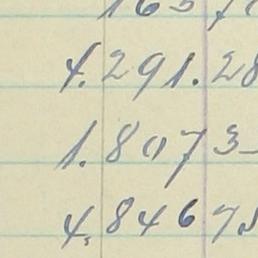 163
4.291.28
1.8073-
4.8467